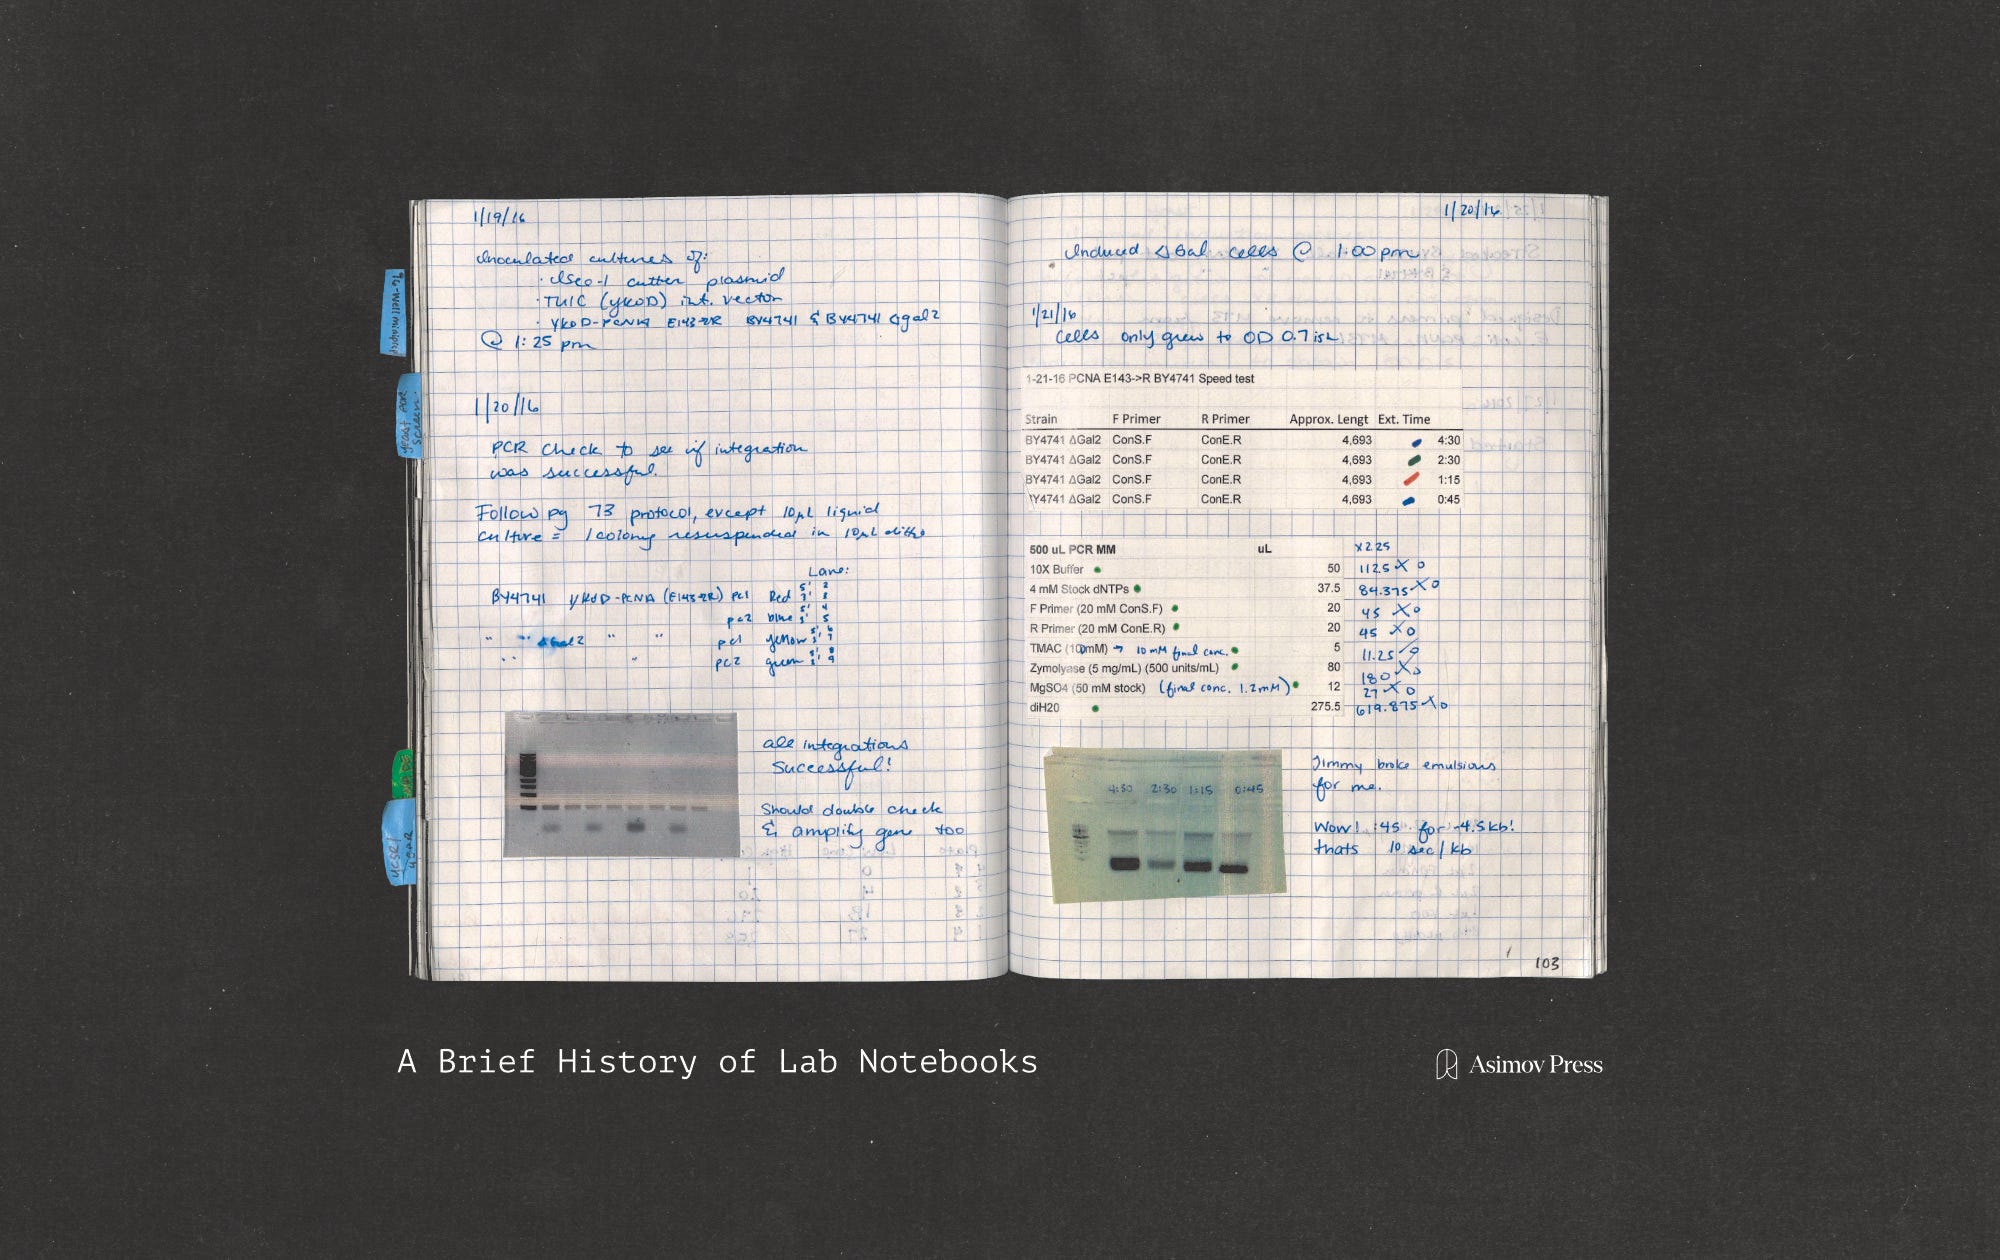 1/19/16
Inoculated cultures of:
· Isce-1 cutter plasmid
· THIC (yKOD) int. vector
· YKOD-PCNA E143→R BY4741 & BY4741 Δgal2
@ 1:25 pm
1/20/16
PCR check to see if integration
was successful.
Follow pg 73 protocol, except 10µL liquid
culture = 1 colony resuspended in 10µL
Lane:
BY4741 YKOD-PCNA (E143→R) pc1 Red 5' 2
3' 3
pc2 blue 5' 4
3' 5
" " ΔGal2 " " pc1 yellow 5' 6
3' 7
" " " pc2 green 5' 8
3' 9
all integrations
successful!
Should double check
& amplify gene too
96-well miniprep
yeast PCR
screen
1/20/16
Induced ΔGal cells @ 1:00 pm
1/21/16
cells only grew to OD 0.7ish
1-21-16 PCNA E143->R BY4741 Speed test
Strain F Primer R Primer Approx. Lengt Ext. Time
BY4741 ΔGal2 ConS.F ConE.R 4,693 4:30
BY4741 ΔGal2 ConS.F ConE.R 4,693 2:30
BY4741 ΔGal2 ConS.F ConE.R 4,693 1:15
Y4741 ΔGal2 ConS.F ConE.R 4,693 0:45
500 uL PCR MM uL x2.25
10X Buffer 50 112.5 X 0
4 mM Stock dNTPs 37.5 84.375 X 0
F Primer (20 mM ConS.F) 20 45 X 0
R Primer (20 mM ConE.R) 20 45 X 0
TMAC (100mM) → 10 mM final conc. 5 11.25
Zymolyase (5 mg/mL) (500 units/mL) 80 180 X 0
MgSO4 (50 mM stock) (final conc. 1.2mM) 12 27 X 0
diH20 275.5 619.875 X 0
4:30 2:30 1:15 0:45
Jimmy broke emulsions
for me.
Wow! :45 for ~4.5kb!
thats 10 sec/kb
103
A Brief History of Lab Notebooks
Asimov Press